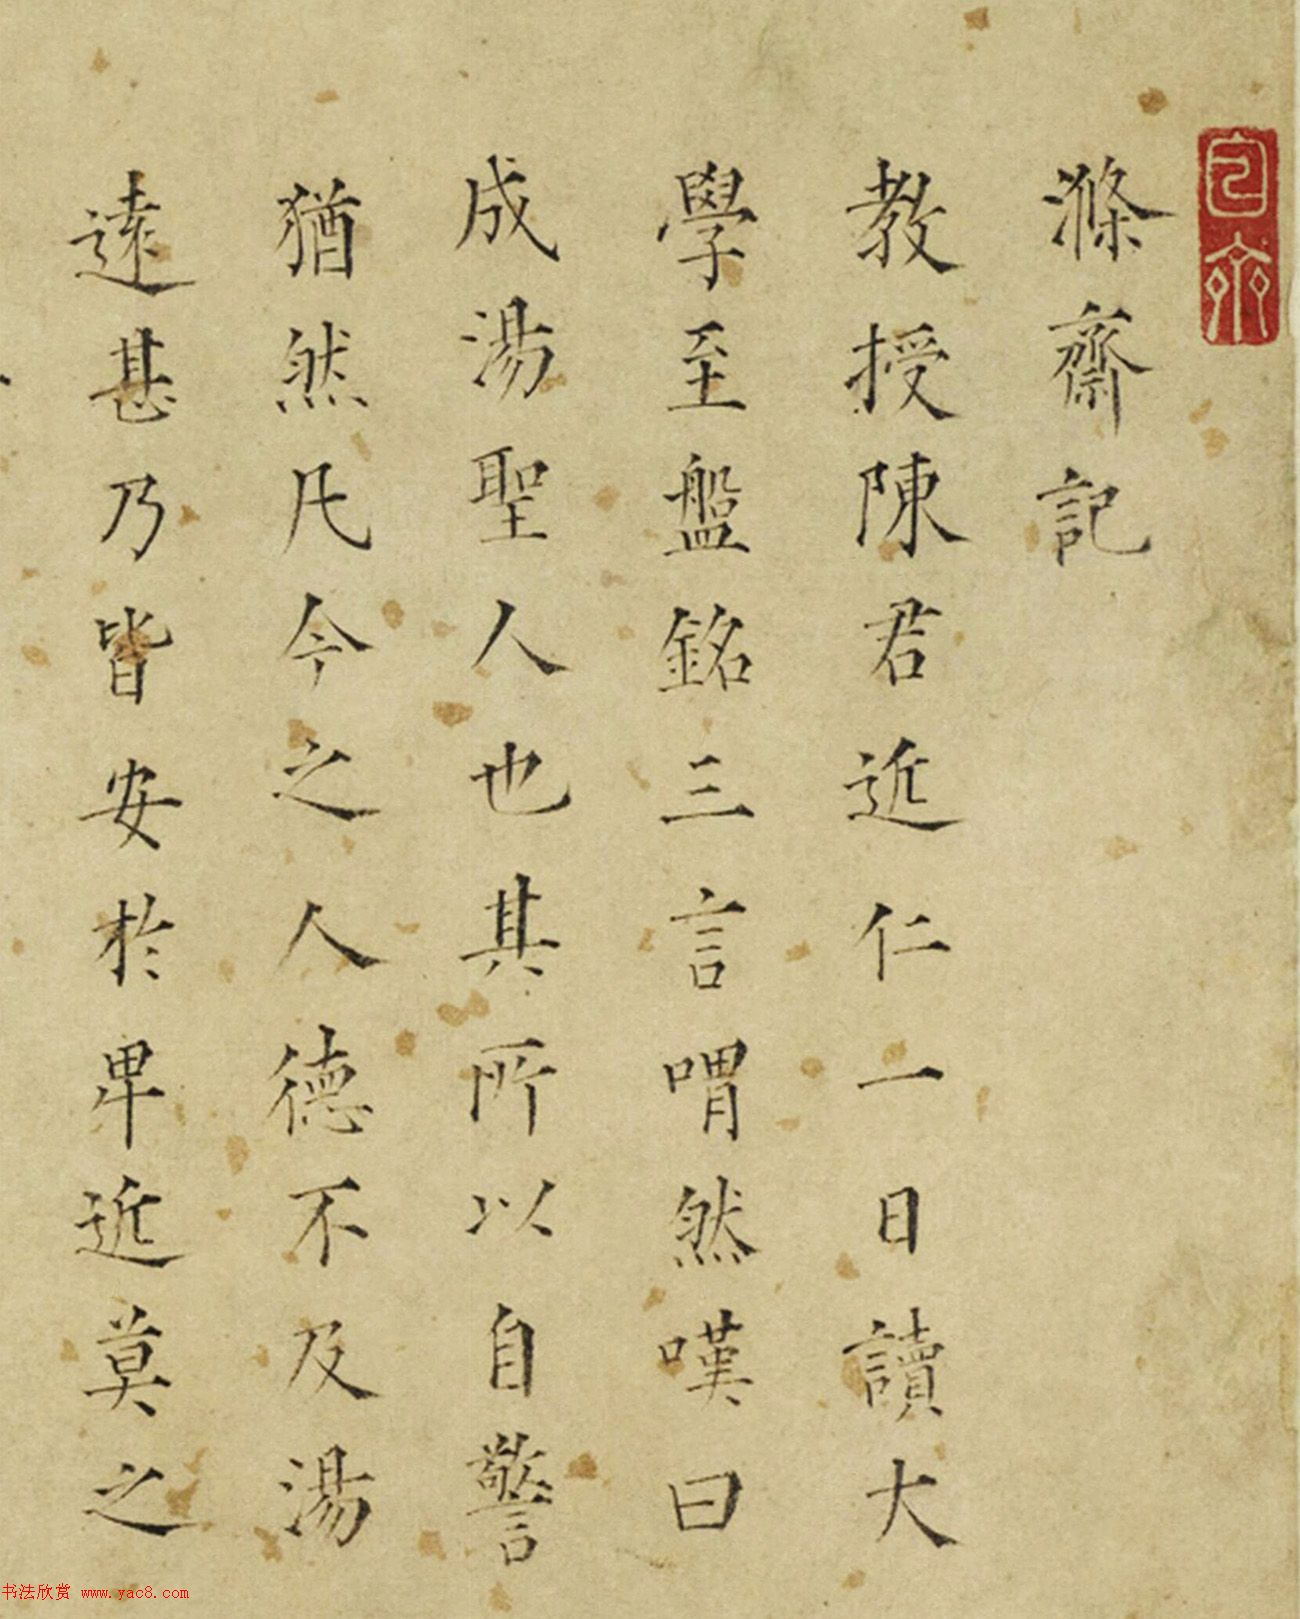 滌齋記
教授陳君近仁一日讀大
學至盤銘三言喟然嘆曰
成湯聖人也其所以自警
猶然凡今之人德不及湯
遠甚乃皆安於卑近莫之
书法欣赏 www.yac8.com